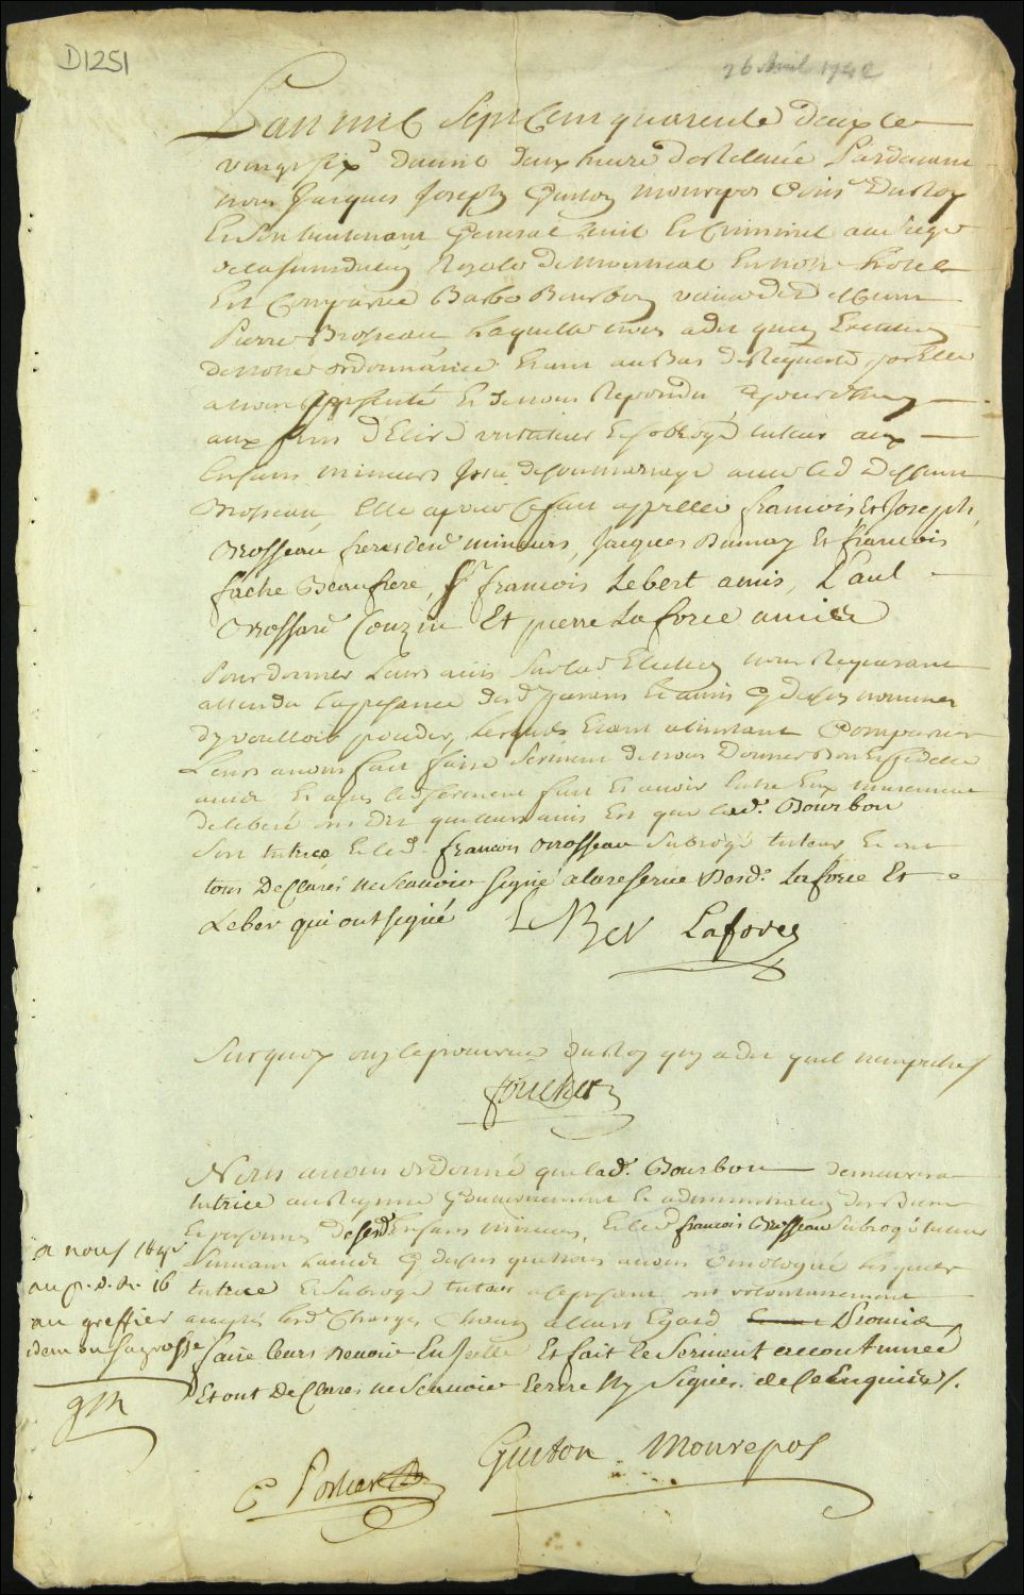 D1251
26 Avril 1742
L'an mil sept Cent quarente deux le
vingt six d'avril deux heure de Relevée Pardevant
nous Jacques Joseph Guiton Monrepos Cons.r Du Roy
Et Son lieutenant General Civil Et Criminel au siege
de la Jurisdiction Royale de Montreal En notre hotel
Est Comparüe Barbe Bourbon veuve de deffunt
Pierre Brosseau Laquelle nous a dit qu'en Execution
de notre ordonnance Etant au Bas de Requeste par Elle
a nous presenté Et de nous Repondu
aux fins d'Elire un tuteur Et subrogé tuteur aux
Enfans mineurs Issu de son mariage avec led deffunt
Brosseau, Elle a pour Ce fait appellée francois Et Joseph
Brosseau freres desd mineurs, Jacques Et francois
fache Beaufrere, Sr francois Lebert amis, Paul
Brossard Couzin Et pierre Laforce amis
Pour donner Leurs avis Sur lad Election nous Requerant
attendu la presence desd parens Et amis Cy dessus nommés
d'y voulloir proceder, Lesquels Etant a l'instant Comparus
Leurs avons fait faire Serment de nous Donner Bon Et fidelle
avis Et apres led Serment fait Et avoir Entre Eux murement
deliberé ont dit que leurs avis Est que lad.e Bourbon
Soit tutrice Et led. francois Brosseau Subrogé tuteur Et ont
tous Declarés ne Scavoir Signé a la reserve Desd. Laforce Et
Leber qui ont signé LeBer Laforce
Sur quoy ouy le procureur du Roy qui a dit qu'il n'empeche /
foucher
Nous avons ordonné que lad.e Bourbon demeurera
tutrice au Regime Gouvernement Et administration des Biens
Et personnes desd Enfans mineurs, Et led francois Brosseau Subrogé tuteur
Suivant L'avis Cy dessus que nous avons Omologué Lesquels
tutrice Et Subrogé tuteur a ce present ont volontairement
accepté lesd Charges Chacun a leurs Egard Promis
faire leurs devoir En Icelle Et fait le Serment accoutumée
Et ont Declarés ne Scavoir Ecrire Ny Signer. de Ce Enquis /.
a nous
au p. d. R. 16
au greffier
idem en sa grosse
GM
C Porlier
Guiton Monrepos